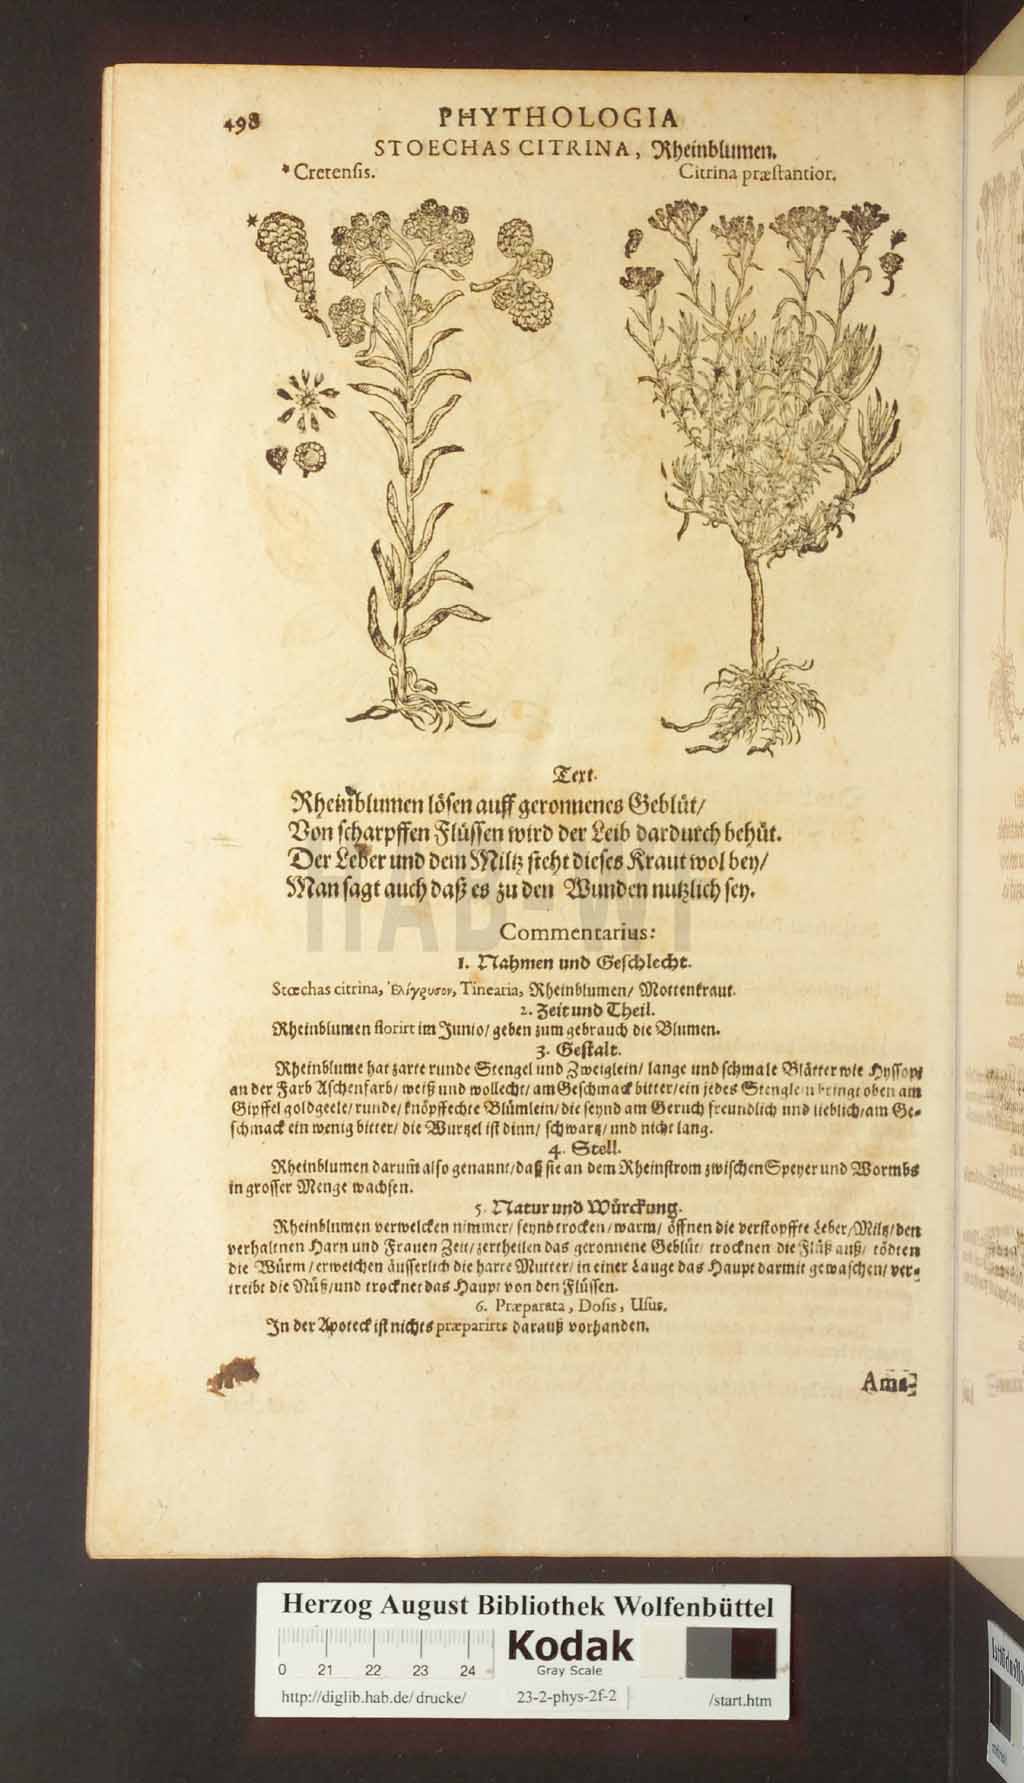 498
PHYTHOLOGIA
STOECHAS CITRINA, Rheinblumen.
* Cretensis.
Citrina præstantior.
Text.
Rheinblumen lösen auff geronnenes Geblüt/
Von scharpffen Flüssen wird der Leib dardurch behüt.
Der Leber und dem Miltz steht dieses Kraut wol bey/
Man sagt auch daß es zu den Wunden nutzlich sey.
Commentarius:
1. Nahmen und Geschlecht.
Stœchas citrina, Tinearia, Rheinblumen/ Mottenkraut.
2. Zeit und Theil.
Rheinblumen florirt im Junio/ geben zum gebrauch die Blumen.
3. Gestalt.
Rheinblume hat zarte runde Stengel und Zweiglein/ lange und schmale Blätter wie Hyssop/
an der Farb Aschenfarb/ weiß und wollecht/ am Geschmack bitter/ ein jedes Stenglein bringt oben am
Gipffel goldgeele/ runde/ knöpffechte Blümlein/ die seynd am Geruch freundlich und lieblich/ am Ge-
schmack ein wenig bitter/ die Wurzel ist dinn/ schwartz/ und nicht lang.
4. Stell.
Rheinblumen darum̃ also genannt/ daß sie an dem Rheinstrom zwischen Speyer und Wormbs
in grosser Menge wachsen.
5. Natur und Würckung.
Rheinblumen verwelcken nimmer/ seynd trocken/ warm/ öffnen die verstopffte Leber/ Miltz/ den
verhaltnen Harn und Frauen Zeit/ zertheilen das geronnene Geblüt/ trocknen die Flüß auß/ tödten
die Würm/ erweichen äusserlich die harte Mutter/ in einer Lauge das Haupt darmit gewaschen/ ver-
treibt die Nüß/ und trocknet das Haupt von den Flüssen.
6. Præparata, Dosis, Usus.
In der Apoteck ist nichts præparirts darauß vorhanden.
Ama-
HAB-WF
Herzog August Bibliothek Wolfenbüttel
0 21 22 23 24
Kodak
Gray Scale
http://diglib.hab.de/drucke/ 23-2-phys-2f-2 /start.htm